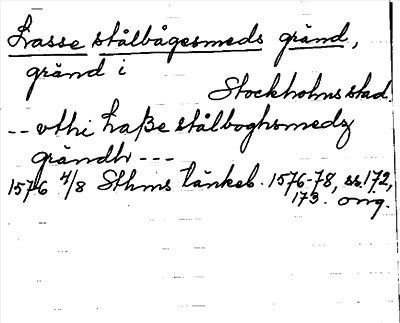 Lasse stålbågesmeds gränd,
gränd i
Stockholms stad.
-- vthi Laße stålboghsmedz
grändh ---
1576 4/8 Sthms tänkeb. 1576-78, ss. 172,
173. orig.